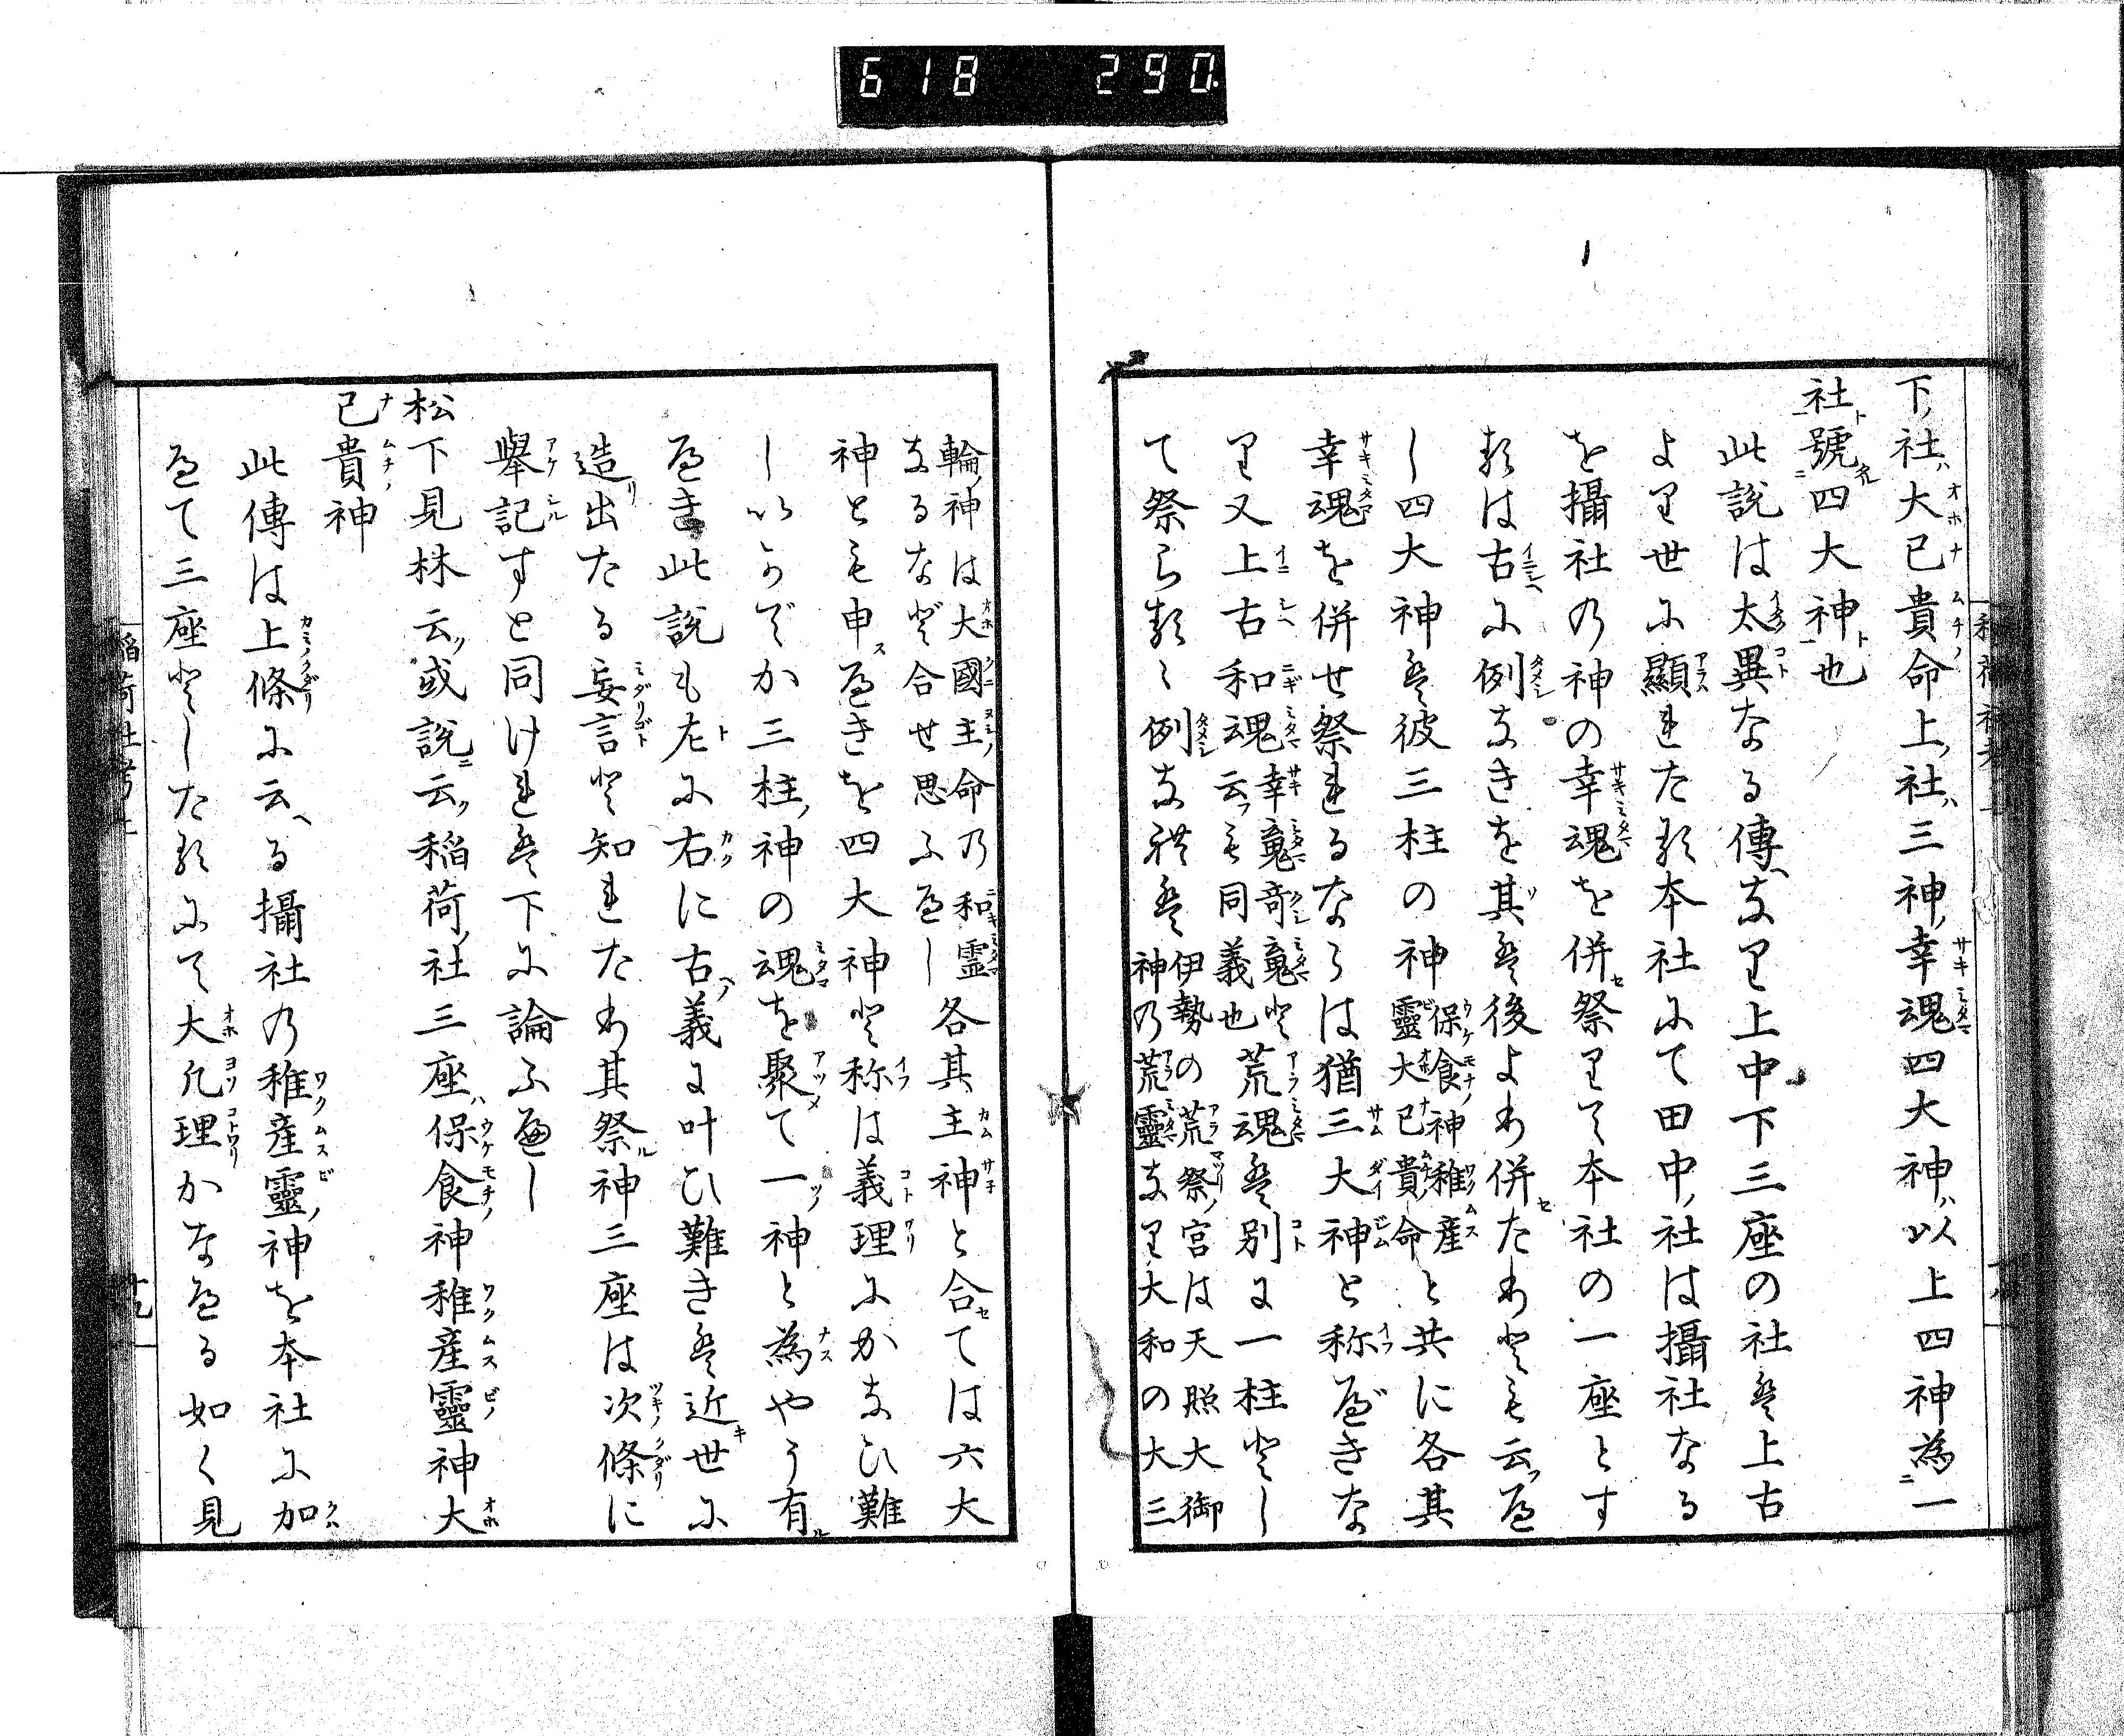 618 290
下ノ社ハ大己貴命上ノ社ハ三神ノ幸魂四大神ハ以上四神為一
社號四大神也
此説は太異なる傳なり上中下三座の社は上古
より世に顯れたる本社にて田中ノ社は攝社なる
を攝社の神の幸魂を併祭りて本社の一座とす
るは古に例なきを其は後より併たりとも云べ
し四大神は彼三柱の神保食ノ神稚産靈大己貴命と共に各其
幸魂を併せ祭れるならは猶三大神と称べきな
り又上古和魂幸䰟奇䰟と云も同義也荒魂は別に一柱とし
て祭らるゝ例なれは伊勢の荒祭ノ宮は天照大御神の荒靈なり大和の大三
輪ノ神は大國主ノ命の和靈なるなど合せ思ふべし各其主神と合ては六大
神とも申べきを四大神と称は義理にかなひ難
しいかでか三柱ノ神の魂を聚て一神と為やう有
べき此説も左に右に古義に叶ひ難きは近世に
造出たる妄言と知れたり其祭神三座は次條に
擧記すと同けれは下に論ふべし
松下見林云或説云稲荷ノ社三座ハ保食神稚産靈神大
己貴神
此傳は上條に云る攝社の稚産靈ノ神を本社に加
へて三座としたるにて大凡理かなへる如く見
稲荷社考上